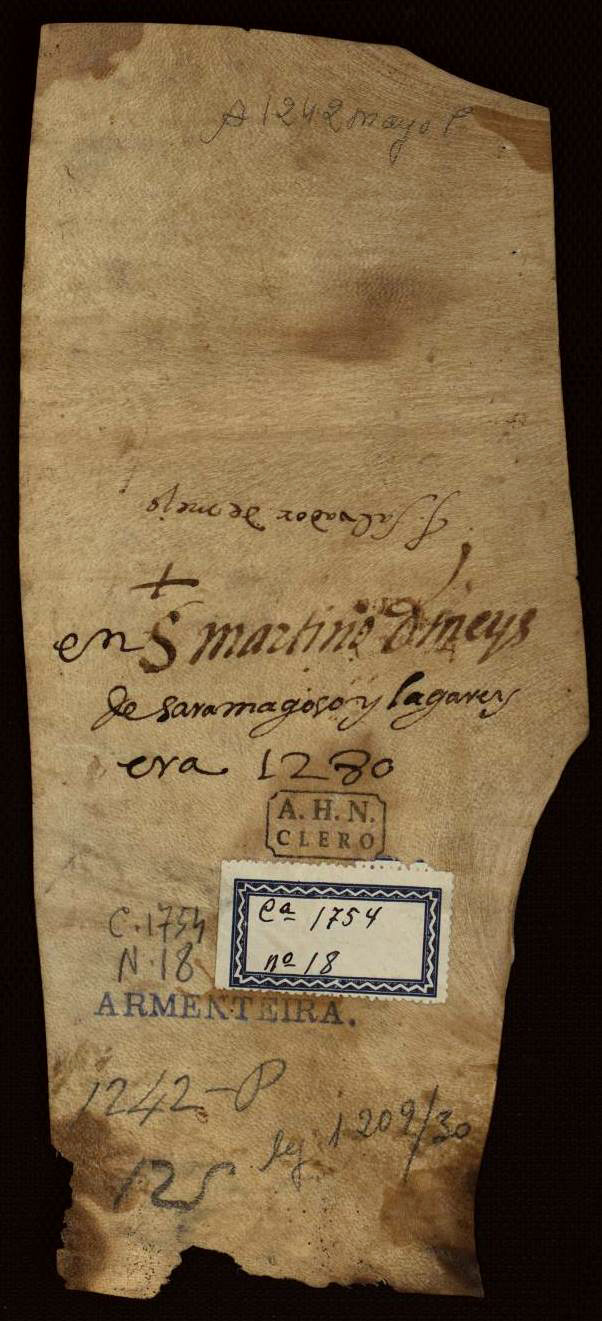 A 1242 mayo P
S. Salvador de meis
+
en S martino d meys
de saramagoso y lagares
era 1280
A. H. N.
CLERO
Cª 1754
nº 18
C. 1754
N. 18
ARMENTEIRA.
1242-P
leg 1209/30
125